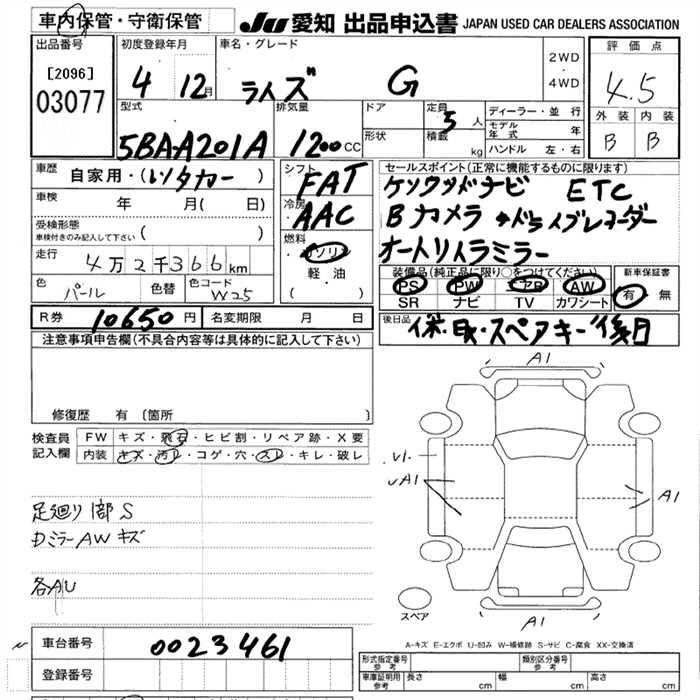 車内保管・守衛保管
JU 愛知 出品申込書 JAPAN USED CAR DEALERS ASSOCIATION
出品番号
[2096]
03077
初度登録年月
4 12月
車名・グレード
ライズ G
2WD
・
4WD
評価点
4.5
外装 内装
B B
型式
5BA-A201A
排気量
1200cc
ドア
形状
定員 5人
積載 kg
ディーラー・並行
モデル年式 年
ハンドル 左・右
車歴 自家用・(レンタカー)
車検 年 月( 日)
受検形態
車検付きのみ記入して下さい ( )
走行 4万2千366km
色 パール 色替 色コード W25
シフト
FAT
冷房
AAC
燃料
ガソリン
軽・油
( )
セールスポイント(正常に機能するものに限ります)
ケンウッドナビ ETC
Bカメラ ドライブレコーダー
オートリトラミラー
装備品(純正品に限り○をつけてください)
PS PW エアB AW
SR ナビ TV カワシート
新車保証書
有・無
R券 10650円 名変期限 月 日
後日品 保・取・スペアキー後日
注意事項申告欄(不具合内容等は具体的に記入して下さい)
修復歴 有〔箇所 〕
検査員記入欄
FW キズ・飛石・ヒビ割・リペア跡・X要
内装 キズ・汚レ・コゲ・穴・スレ・キレ・破レ
足廻り1部S
DミラーAWキズ
各AU
A1
V1
UA1
A1
A1
スペア
A-キズ E-エクボ U-凹み W-補修跡 S-サビ C-腐食 XX-交換済
車台番号 0023461
登録番号
形式指定番号 参考
類別区分番号 参考
車庫証明用 参考 長さ cm 幅 cm 高さ cm